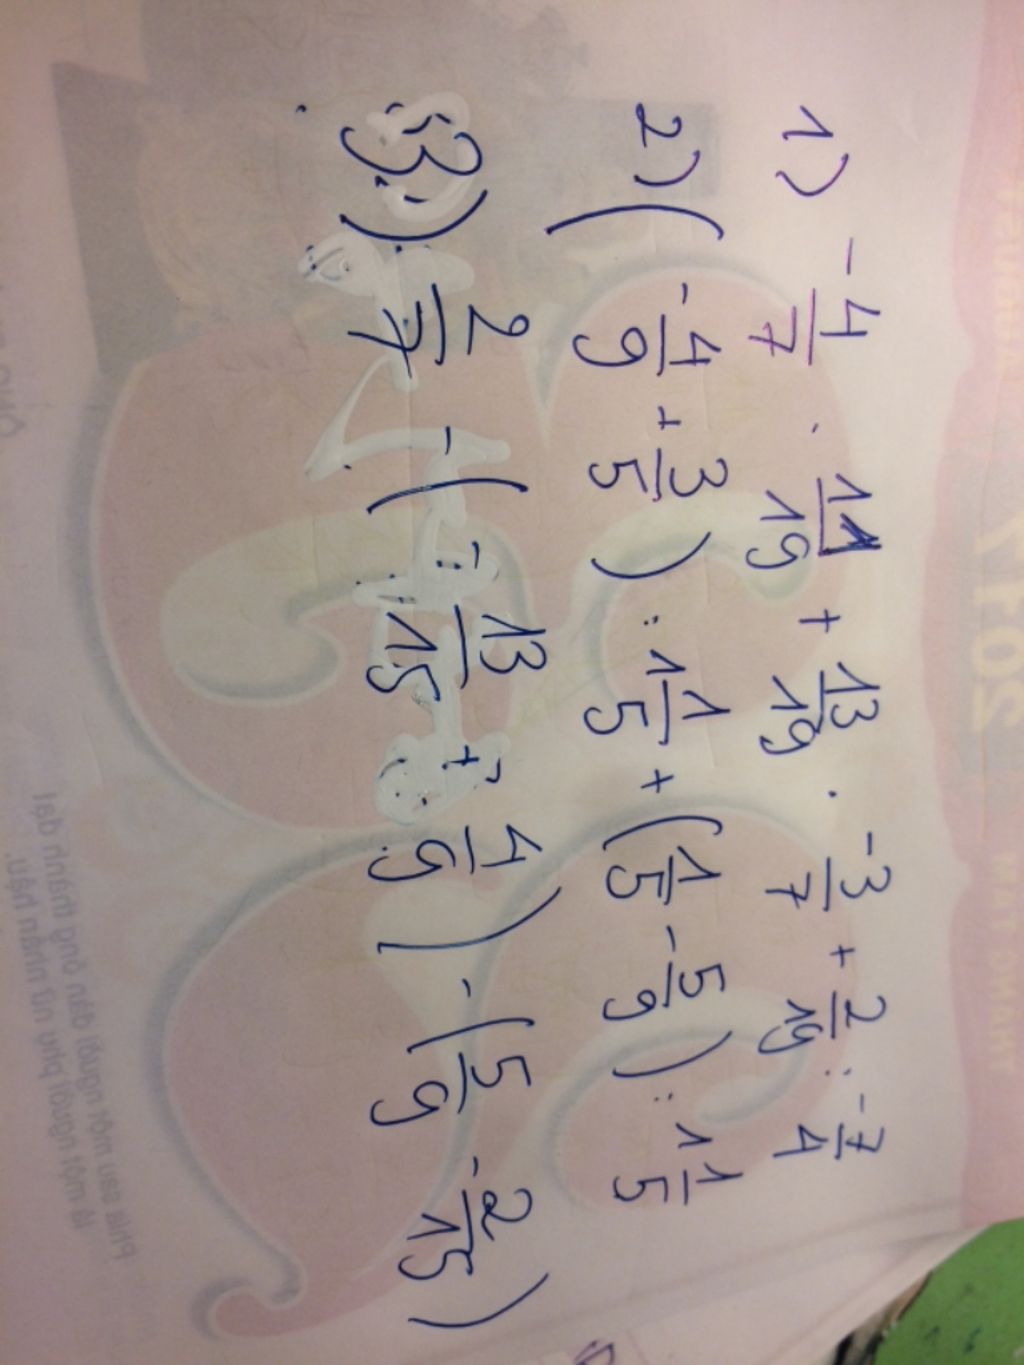 1) -4/7 . 11/19 + 13/19 . -3/7 + 2/19 : -7/4
2) ( -4/9 + 3/5 ) : 1 1/5 + ( 1/5 - 5/9 ) : 1 1/5
3) 2/7 - ( - 13/15 + -4/9 ) - ( 5/9 - 2/15 )
Phía sau một người đàn ông thành đạt
là một người phụ nữ nhân hậu.